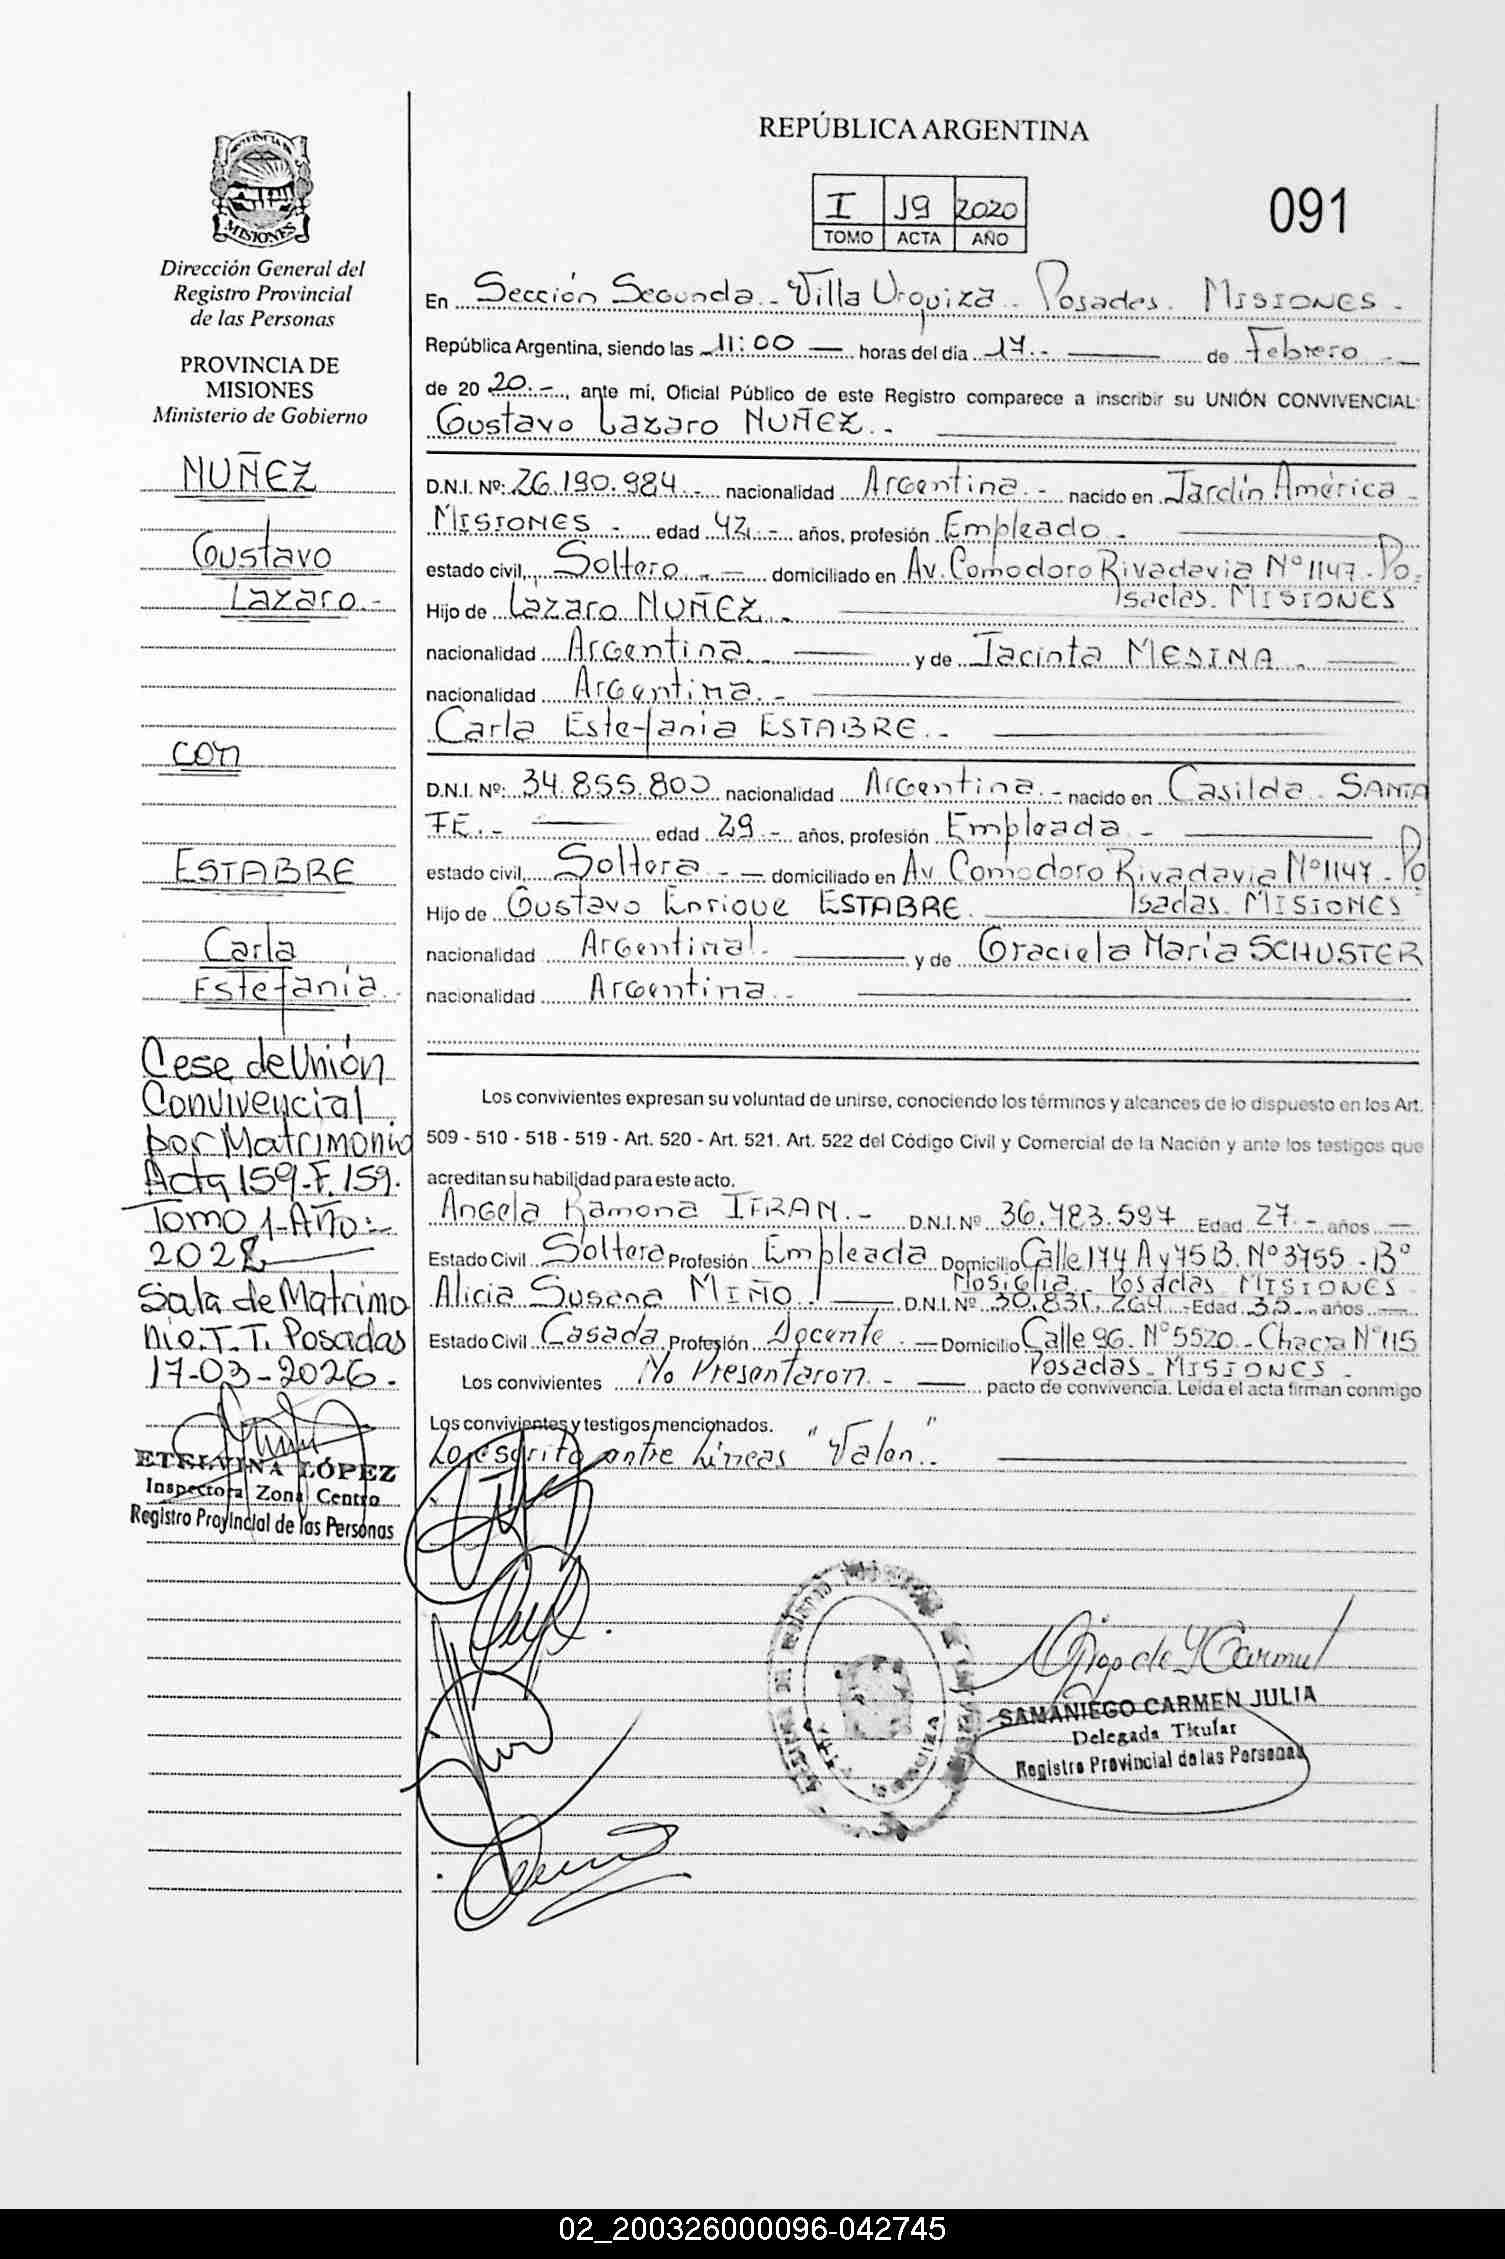 REPÚBLICA ARGENTINA
I 19 2020
TOMO ACTA AÑO
091
PROVINCIA DE
MISIONES
Dirección General del
Registro Provincial
de las Personas
PROVINCIA DE
MISIONES
Ministerio de Gobierno
NUÑEZ
Gustavo
Lazaro.-
con
ESTABRE
Carla
Estefanía.-
Cese de Unión
Convivencial
por Matrimonio
Acta 159-F. 159.
Tomo 1-Año:-
Sala de Matrimo
nio.T.T. Posadas
17-03-2026.
ETELVINA LÓPEZ
Inspectora Zona Centro
Registro Provincial de las Personas
En Sección Segunda.- Villa Urquiza.- Posadas. MISIONES.-
República Argentina, siendo las 11:00 — horas del día 17.- — de Febrero.-
de 20 20.-, ante mí, Oficial Público de este Registro comparece a inscribir su UNIÓN CONVIVENCIAL:
Gustavo Lazaro NUÑEZ.-
D.N.I. Nº: 26.190.984.- nacionalidad Argentina.- nacido en Jardín América.-
MISIONES.- edad 42.- años, profesión Empleado.-
estado civil, Soltero.- — domiciliado en Av. Comodoro Rivadavia Nº 1147.- Po-
sadas. MISIONES
Hijo de Lazaro NUÑEZ.-
nacionalidad Argentina.- — y de Jacinta MEDINA.-
nacionalidad Argentina.-
Carla Estefania ESTABRE.-
D.N.I. Nº: 34.855.800 nacionalidad Argentina.- nacido en Casilda. SANTA
FE.- — edad 29.- años, profesión Empleada.-
estado civil, Soltera.- — domiciliado en Av. Comodoro Rivadavia Nº 1147.- Po
sadas. MISIONES
Hijo de Gustavo Enrique ESTABRE.
nacionalidad Argentina.- — y de Graciela María SCHUSTER
nacionalidad Argentina.-
Los convivientes expresan su voluntad de unirse, conociendo los términos y alcances de lo dispuesto en los Art.
509 - 510 - 518 - 519 - Art. 520 - Art. 521. Art. 522 del Código Civil y Comercial de la Nación y ante los testigos que
acreditan su habilidad para este acto.
Angela Ramona IFRAN.- D.N.I. Nº 36.483.597 Edad 27.- años —
Estado Civil Soltera Profesión Empleada Domicilio Calle 174 A y 75 B. Nº 3755 - Bº
Mosiglia. Posadas MISIONES
Alicia Susana MIÑO. — D.N.I. Nº 30.831.264.- Edad 35.- años —
Estado Civil Casada Profesión Docente.- Domicilio Calle 96. Nº 5520.- Chacra Nº 115
Posadas.- MISIONES.-
Los convivientes No Presentaron.- — pacto de convivencia. Leída el acta firman conmigo
Los convivientes y testigos mencionados.
Lo escrito entre Líneas "Valen".-
SAMANIEGO CARMEN JULIA
Delegada Titular
Registro Provincial de las Personas
02_200326000096-042745